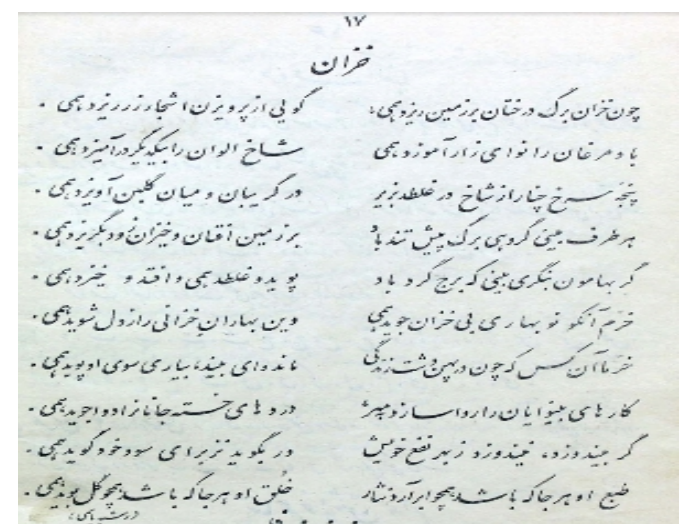 ۱۷
خزان
چون خزان برگ درختان بر زمین ریزد همی، گویی از پرویزن اشجار زر ریزد همی.
باد مرغان را نوای زار آموزد همی شاخ الوان را بیکدیگر درآمیزد همی.
پنجهٔ سرخ چنار از شاخ در غلطد بزیر در گریبان و میان گلبن آویزد همی.
هر طرف بینی گروهی برگ پیش تندباد بر زمین افتان و خیزان زود بگریزد همی.
گر بهامون بنگری بینی که برج گردباد پوید و غلطد همی و افتد و خیزد همی.
خرم آنکو نوبهاری بی خزان جوید همی وین بهاران خزانی را ز دل شوید همی.
خرما آن کس که چون در پهن دشت زندگی مانده‌ای بیند، بیاری سوی او پوید همی.
کارهای بینوایان را روا سازد و مهر دردهای خسته جانان را دوا جوید همی.
گر بیندوزد، نیندوزد ز بهر نفع خویش ور بگوید نز برای سود خود گوید همی.
طبع او هر جا که باشد همچو ابر آرد نثار خلق او هر جا که باشد همچو گل بوید همی.